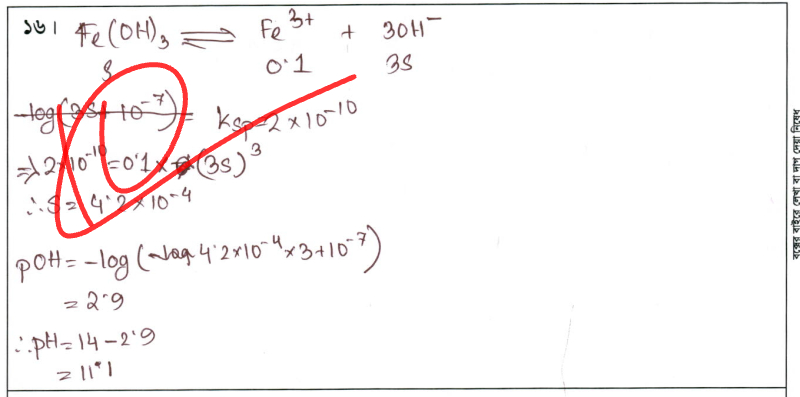 ১৬। Fe(OH)₃ ⇌ Fe³⁺ + 3OH⁻
S 0.1 3S
-log(3S+10⁻⁷) = Ksp = 2×10⁻¹⁰
⇒ 2×10⁻¹⁰ = 0.1 × (3S)³
∴ S = 4.2×10⁻⁴
pOH = -log(4.2×10⁻⁴×3+10⁻⁷)
= 2.9
∴ pH = 14 - 2.9
= 11.1
বক্সের বাইরে লেখা বা দাগ দেয়া নিষেধ